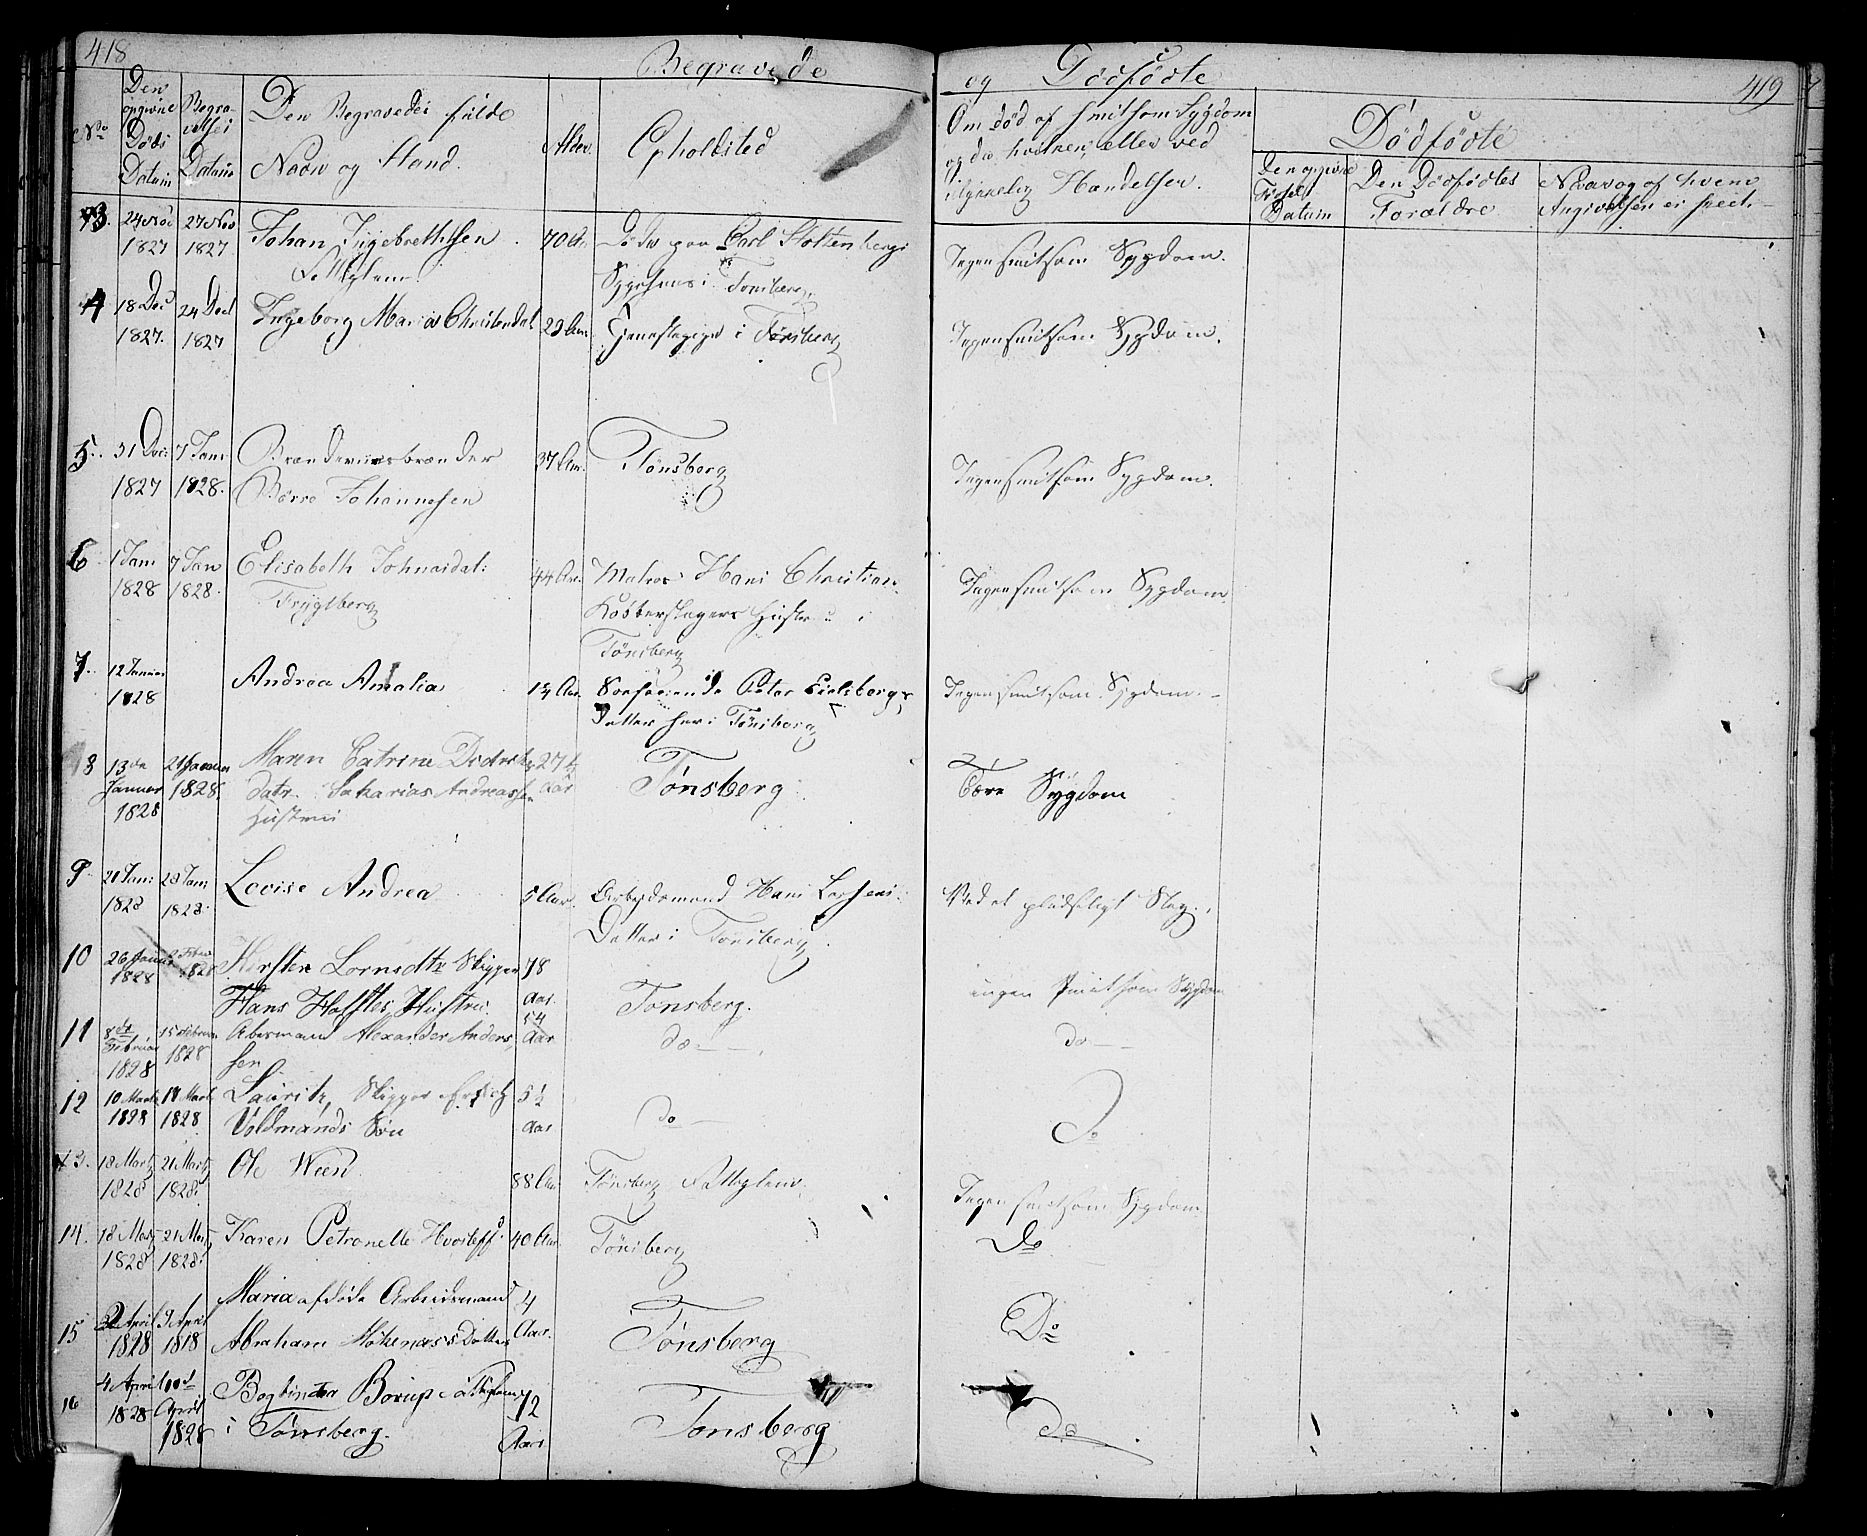 418
Begravede
og Dödfödte
419
No
Den opgivne Döds Datum
Begravelses Datum
Den Begravedes fulde Navn og Stand.
Alder.
Opholdsted
Om död af smitsom Sygdom og da hvilken, eller ved ulykkelig Hændelsen.
Dödfödte
Den opgivne Födsels Datum
Den Dödfödtes Forældre
Naar og af hvem Angivelsen er skeet.
3. 24 Nov 1827 27 Nov 1827 Johan Ingebrethsen 70 Aar Döde paa Carl Stoltenbergs Ingen smitsom Sygdom.
Fattiglem Sygehuus i Tönsberg.
4 18 Dec 1827. 24 Dec 1827 Ingeborg Maria Christensdat 29 Aar Tjenestepige i Tönsberg Ingen smitsom Sygdom.
5. 31 Dec: 1827 7 Jan: 1828. Brændeviinsbrænder 37 Aar. Tönsberg Ingen smitsom Sygdom.
Börre Johannesen
6 1 Jan: 1828 7 Jan 1828. Elisabeth Johnasdat: 44 Aar. Matros Hans Christian Ingen smitsom Sygdom.
Frygtberg Kobberslagers Hustru i
Tönsberg
7. 12 Januar 1828 Andrea Amalia 14 Aar Söefarende Peter Eielsbergs Ingen smitsom Sygdom.
Datter her i Tönsberg
8 13de Januar 1828 21 Januar 1828. Maren Catrine Didriks 27½ Aar Tönsberg Tære Sygdom
datr. Sakarias Andreassen
Hustrue
9. 21 Jan: 1828 28 Jan: 1828. Lovise Andrea 5 Aar. Arbejdsmand Hans Larsens Ved et pludseligt Slag.
Datter i Tönsberg.
10 26 Januar 1828 Februar 1828 Kirsten Lornsdtr Skipper 78 Aar. Tönsberg. ingen smitsom Sygdom
Hans Holstes Hustru.
11 8de Februar 1828 15 Februar 1828 Abesmand Alexander Anders- 54 Aar do do
sen
12 10 Marts 1828 18 Marts 1828 Lauritz, Skipper 5½ Aar do Do
Voldmands Sön
13. 18 Marts 1828 21 Marts 1828. Ole Ween 88 Aar Tönsberg Fattiglem. Ingen smitsom Sygdom
14. 18 Marts 1828 21 Marts 1828. Karen Petronelle 40 Aar Tönsberg Do
15 2 April 1828 9 April 1818 Maria afdöde Arbeidsmand 4 Aar. Tönsberg Do
Abraham Datter
16 4 April 1828 10de April 1828 Bogbinder Borup Fattiglem 72 Aar. Tonsberg do
i Tönsberg.